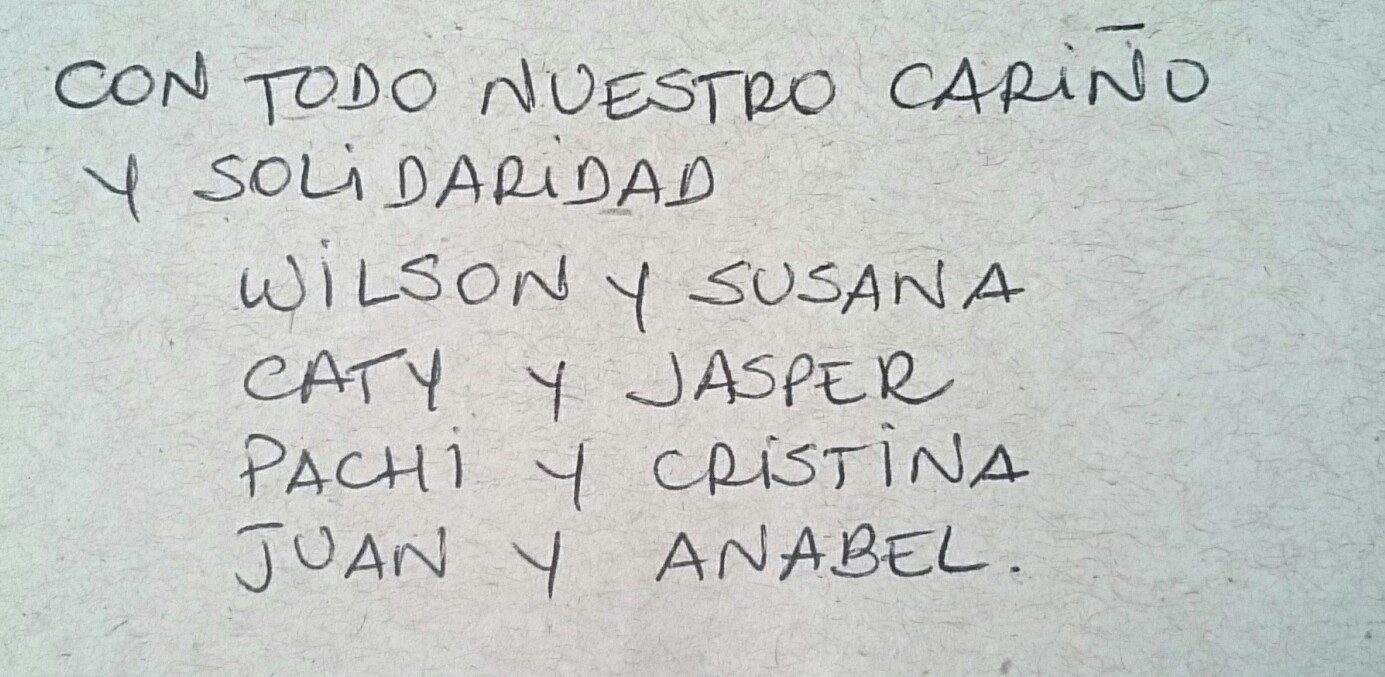 CON TODO NUESTRO CARIÑO
Y SOLIDARIDAD
WILSON Y SUSANA
CATY Y JASPER
PACHI Y CRISTINA
JUAN Y ANABEL.